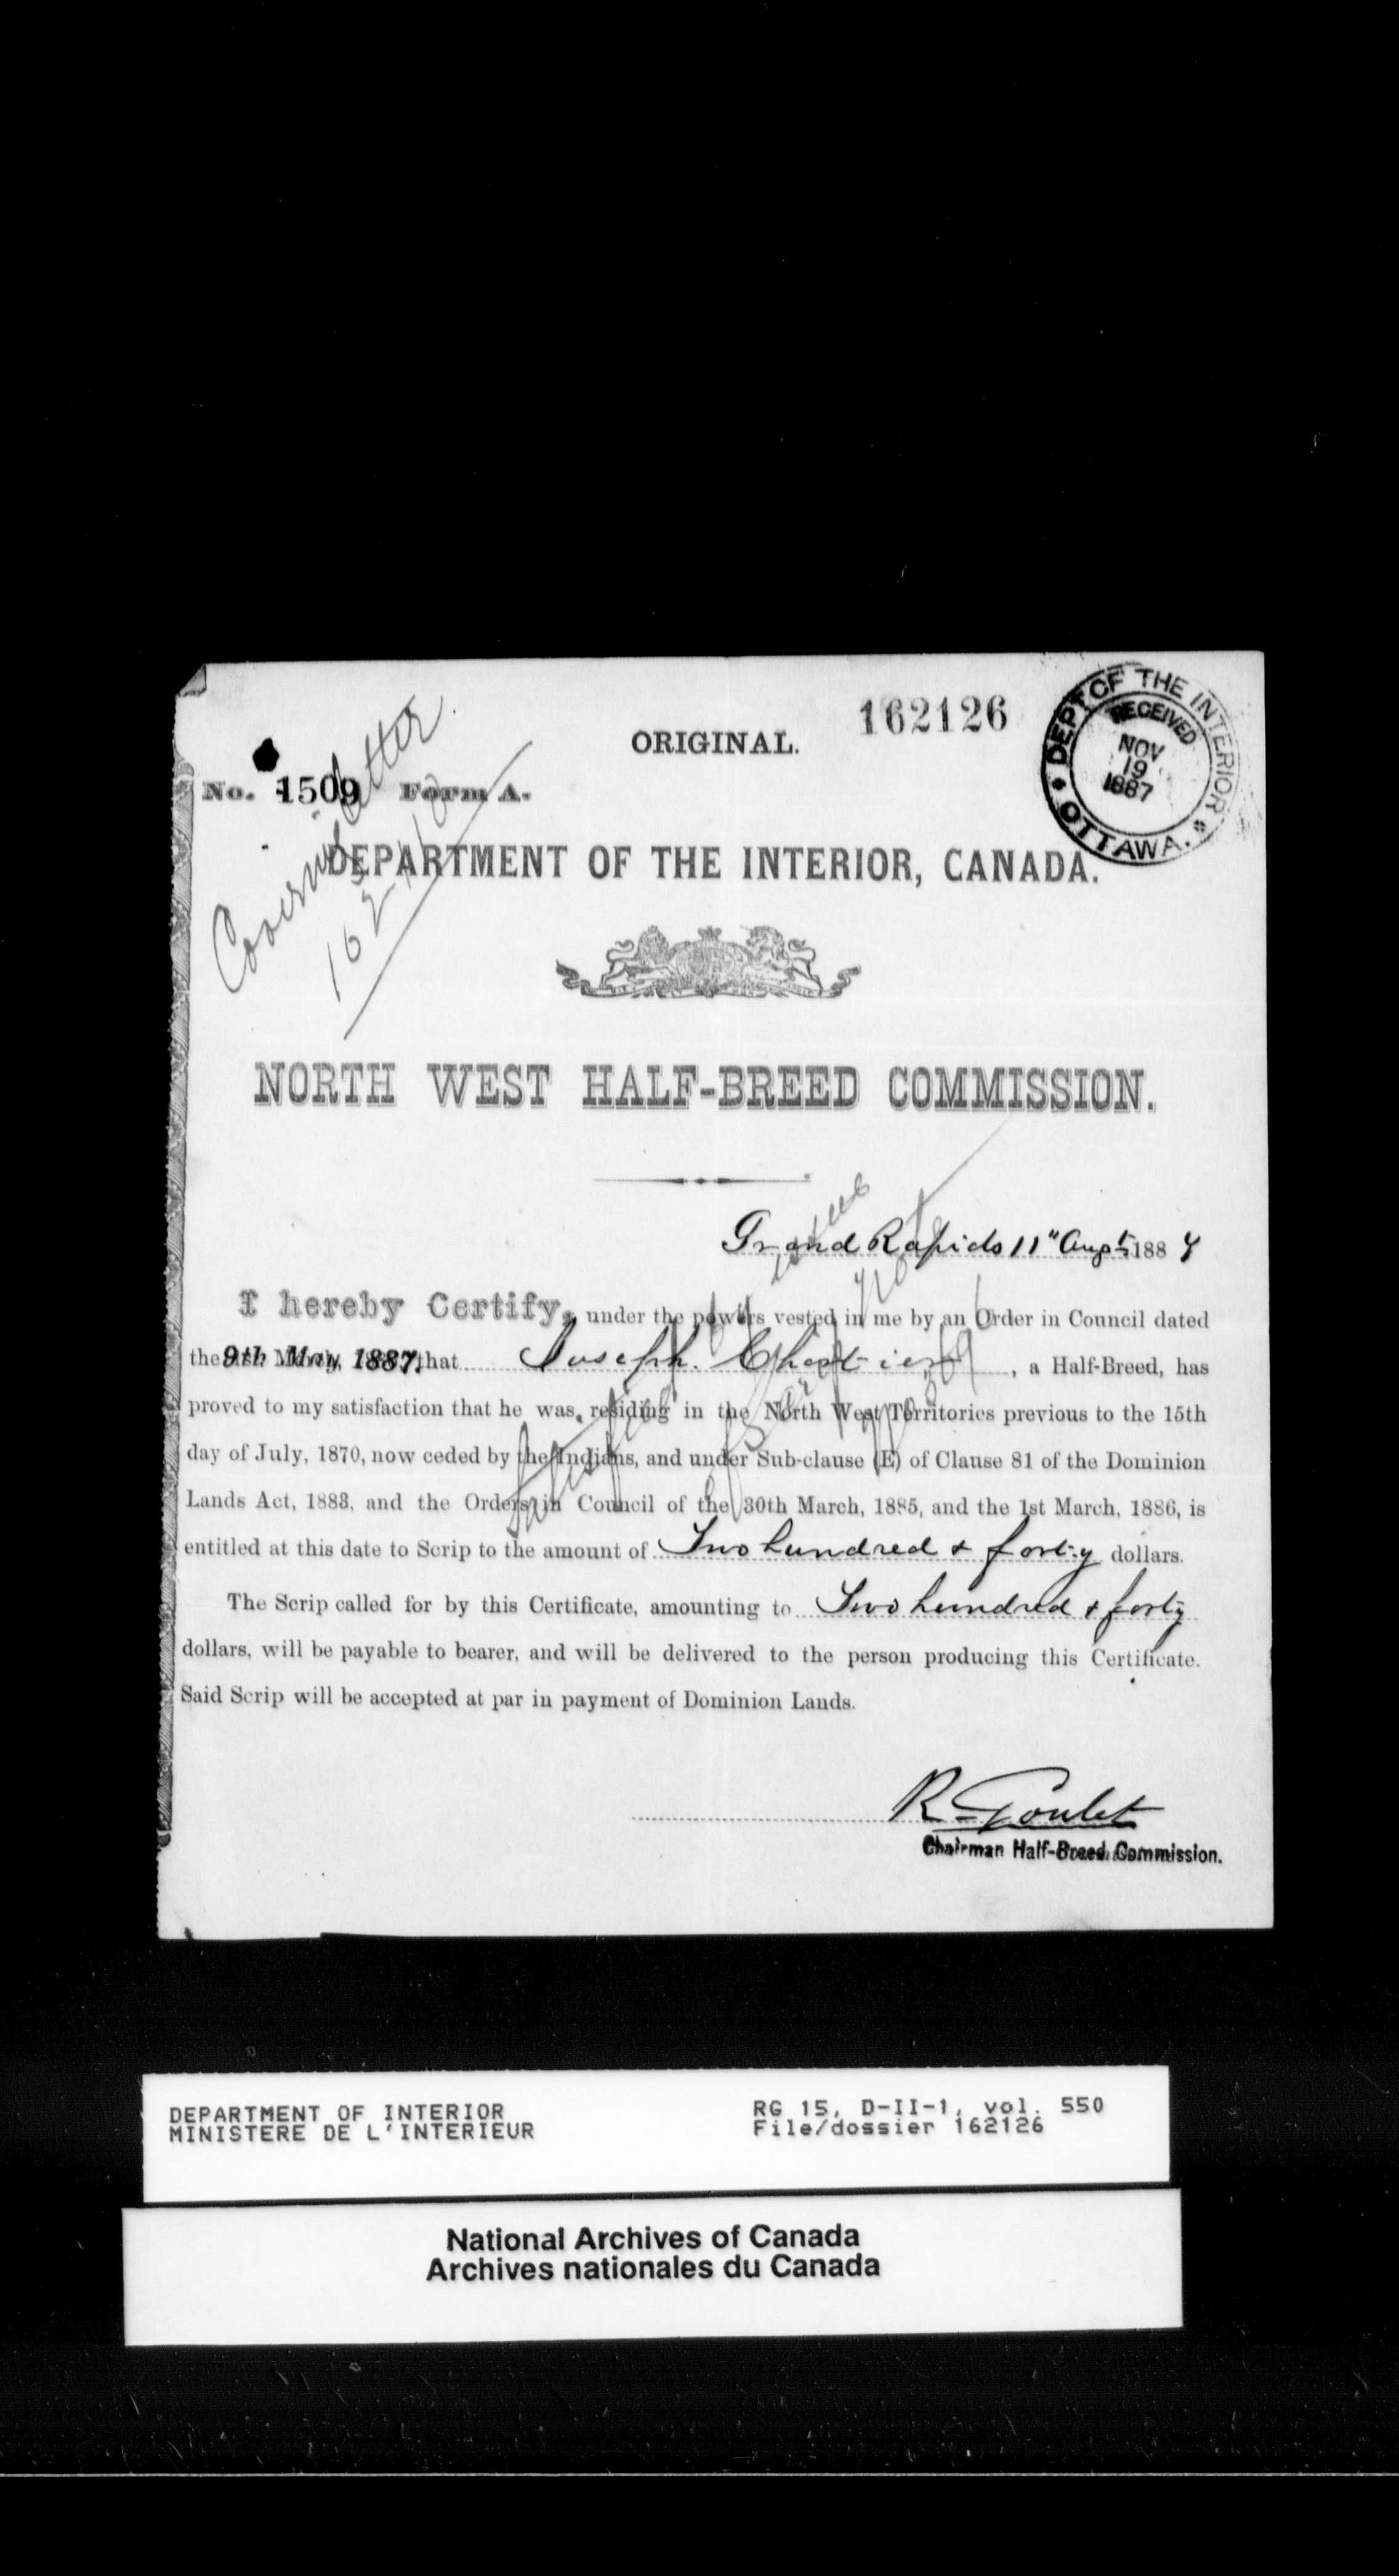 162126
ORIGINAL.
DEPT OF THE INTERIOR
RECEIVED
NOV
19
1887
OTTAWA.
No. 1509 Form A.
Covering letter
DEPARTMENT OF THE INTERIOR, CANADA.
NORTH WEST HALF-BREED COMMISSION.
Grand Rapids 11" Augt 1887
I hereby Certify, under the powers vested in me by an Order in Council dated
the 9th May, 1887, that Joseph Chartier, a Half-Breed, has
proved to my satisfaction that he was residing in the North West Territories previous to the 15th
day of July, 1870, now ceded by the Indians, and under Sub-clause (E) of Clause 81 of the Dominion
Lands Act, 1883, and the Orders in Council of the 30th March, 1885, and the 1st March, 1886, is
entitled at this date to Scrip to the amount of Two hundred & forty dollars.
The Scrip called for by this Certificate, amounting to Two hundred & forty
dollars, will be payable to bearer, and will be delivered to the person producing this Certificate.
Said Scrip will be accepted at par in payment of Dominion Lands.
R Goulet
Chairman Half-Breed Commission.
DEPARTMENT OF INTERIOR
MINISTERE DE L'INTERIEUR
RG 15, D-II-1, vol. 550
File/dossier 162126
National Archives of Canada
Archives nationales du Canada